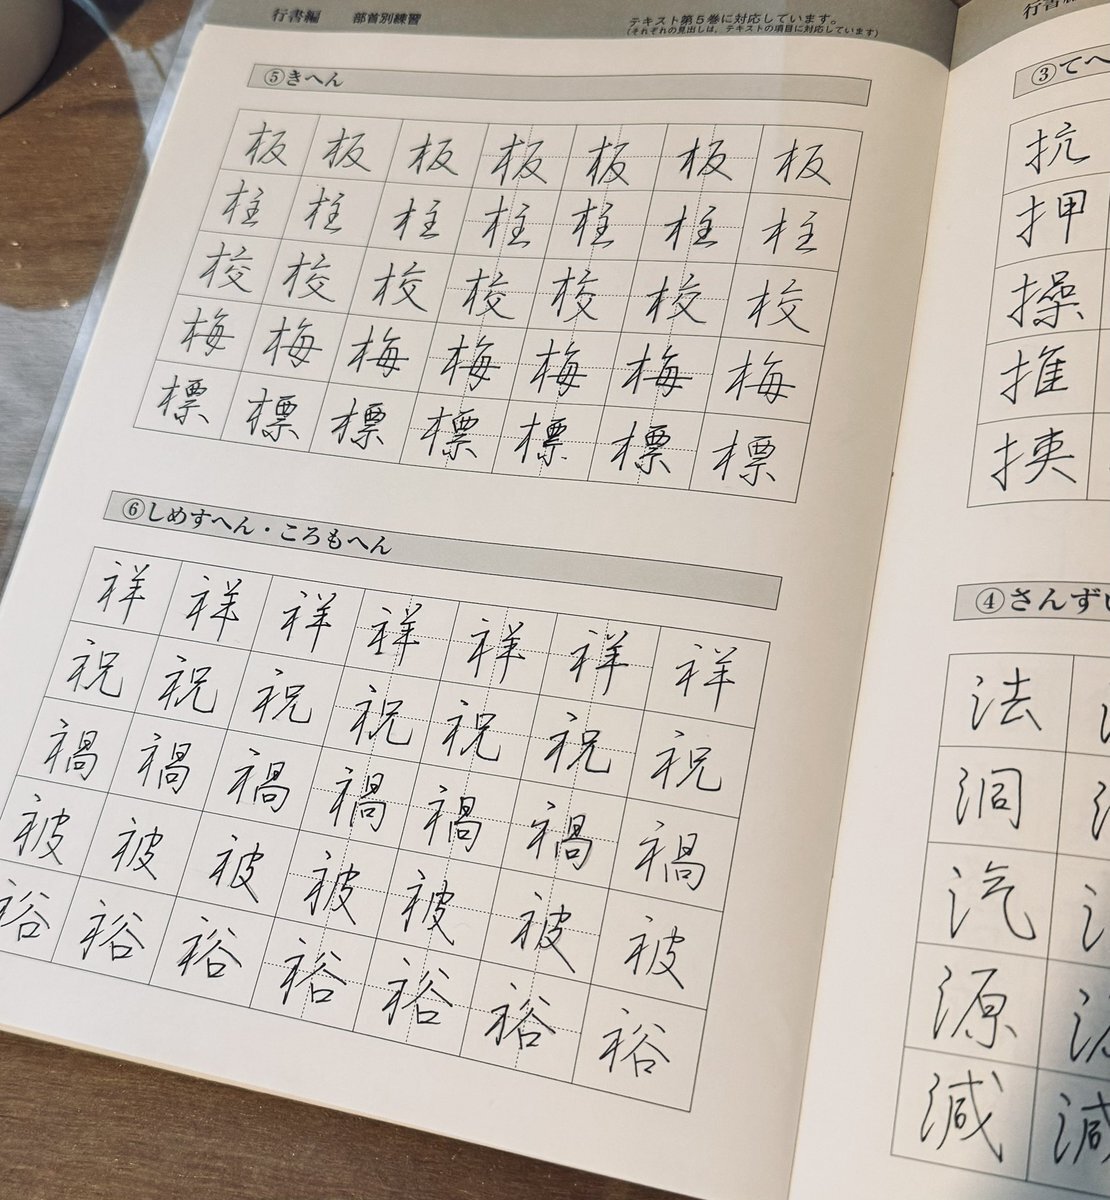 行書編 部首別練習
テキスト第5巻に対応しています。
(それぞれの見出しは、テキストの項目に対応しています)
⑤きへん
板 板 板 板 板 板 板
柱 柱 柱 柱 柱 柱 柱
校 校 校 校 校 校 校
梅 梅 梅 梅 梅 梅 梅
標 標 標 標 標 標 標
⑥しめすへん・ころもへん
祥 祥 祥 祥 祥 祥 祥
祝 祝 祝 祝 祝 祝 祝
禍 禍 禍 禍 禍 禍 禍
被 被 被 被 被 被 被
裕 裕 裕 裕 裕 裕 裕
行書
③てへ
抗
押
操
推
挟
④さんず
法
洞
汽
源 源
減 減